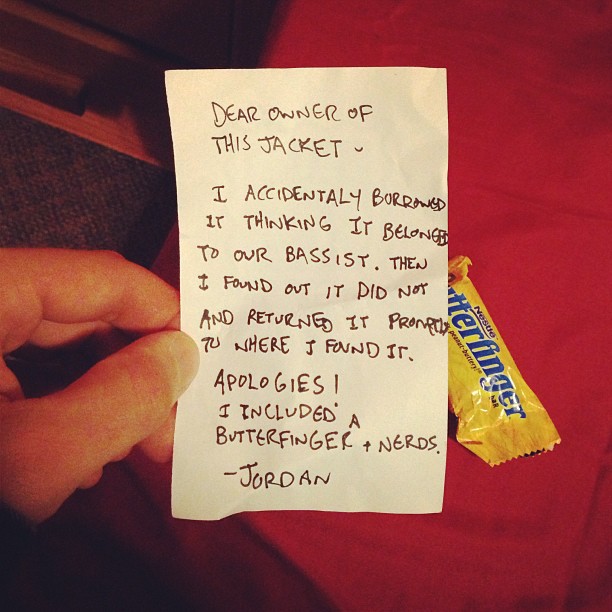 DEAR OWNER OF
THIS JACKET ~
I ACCIDENTALY BORROWED
IT THINKING IT BELONGED
TO OUR BASSIST. THEN
I FOUND OUT IT DID NOT
AND RETURNED IT PROMPTLY
TO WHERE I FOUND IT.
APOLOGIES!
I INCLUDED A
BUTTERFINGER + NERDS.
-JORDAN
Nestle
tterfinger
peanut-buttery
BAR